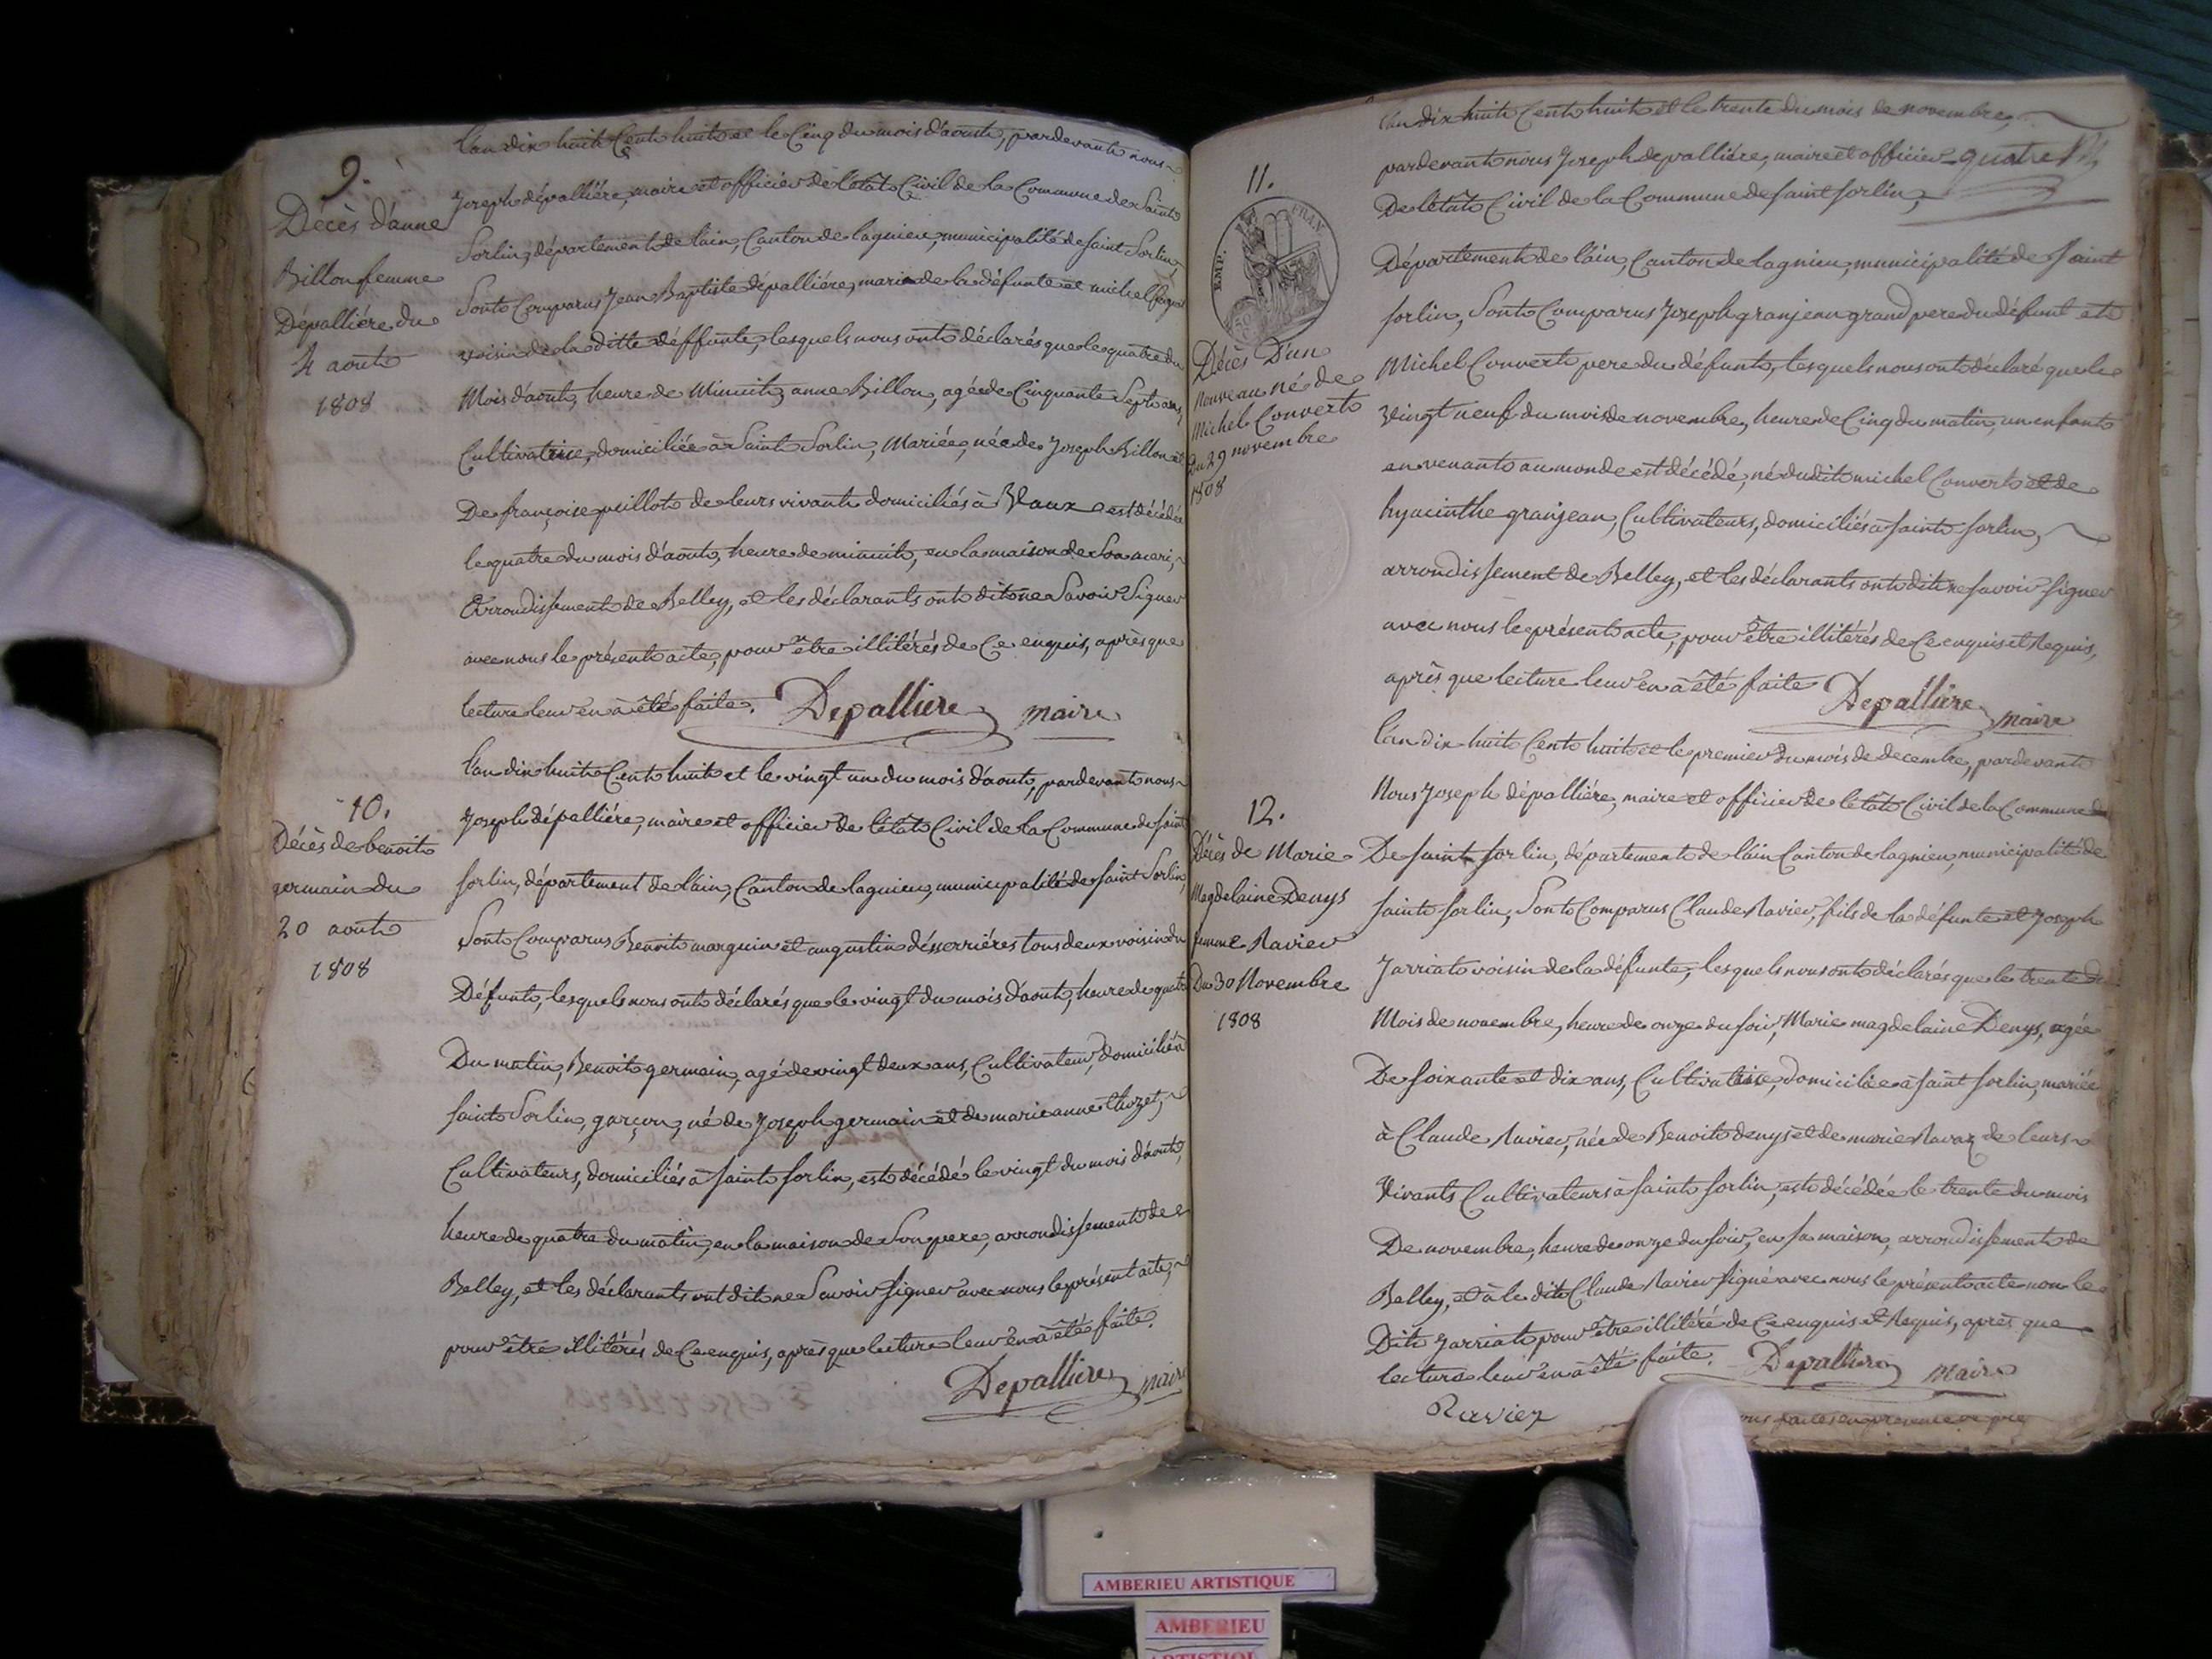 9.
Décès d'anne
Billon femme
Dépalliére du
4 aout
1808
L'an dix huit Cent huit et le Cinq du mois d'aoust, pardevant nous
Joseph dépalliére, maire et officier de l'état Civil de la Commune de Saint
Sorlin, département de lain, Canton de lagnieu, municipalité de saint Sorlin,
Sont Comparus Jean Baptiste dépalliére, mari de la défunte et michel
voisin de la ditte déffunte, lesquels nous ont déclarés que le quatre du
Mois d'aout, heure de Minuit, anne Billon, agée de Cinquante Sept ans,
Cultivatrice, domiciliée à Saint Sorlin, Mariée, née de Joseph Billon et
De françoise puillot de leurs vivant domiciliés à Vaux est décédée
le quatre du mois d'aout, heure de minuit, en la maison de Son mari,
Arrondissement de Belley, et les déclarants ont dit ne Savoir Signer
avec nous le présent acte, pour être illitérés de Ce enquis, après que
lecture leur en à été faite. Depalliere maire
10.
Décès de benoit
germain du
20 aout
1808
L'an dix huit Cent huit et le vingt un du mois d'aout, pardevant nous
Joseph dépalliére, maire et officier de l'état Civil de la Commune de saint
sorlin, département de l'ain, Canton de lagnieu, municipalité de saint Sorlin,
Sont Comparus Benoit marguin et augustin désserriéres tous deux voisin du
Défunt, lesquels nous ont déclarés que le vingt du mois d'aout, heure de quatre
Du matin, Benoit germain, agé de vingt deux ans, Cultivateur, domicilié à
saint Sorlin, garçon, né de Joseph germain et de marie anne thozet,
Cultivateurs, domiciliés à saint sorlin, est décédé le vingt du mois d'aout,
heure de quatre du matin, en la maison de Son pere, arrondissement de
Belley, et les déclarants ont dit ne Savoir signer avec nous le présent acte,
pour être illitérés de Ce enquis, après que lecture leur en à été faite.
Depalliere maire
11.
EMP. FRAN.
Décès D'un
nouveau né de
Michel Convert
Du 29 novembre
1808
L'an dix huit Cent huit et le trente du mois de novembre,
pardevant nous Joseph depalliére, maire et officier quatre
De l'état Civil de la Commune de saint sorlin,
Département de l'ain, Canton de lagnieu, municipalité de saint
sorlin, Sont Comparus Joseph granjean grand pere du défunt et
Michel Convert pere du défunt, lesquels nous ont déclaré que le
vingt neuf du mois de novembre, heure de Cinq du matin, un enfant
en venant au monde est décédé, né du dit michel Convert et de
hyacinthe granjean, Cultivateurs, domiciliés à saint sorlin,
arrondissement de Belley, et les déclarants ont dit ne savoir signer
avec nous le présent acte, pour être illitérés de Ce enquis et Requis,
après que lecture leur en à été faite Depalliere maire
12.
Décès de Marie
Magdelaine Denys
femme Ravier
Du 30 Novembre
1808
L'an dix huit Cent huit et le premier du mois de decembre, pardevant
Nous Joseph dépalliére, maire et officier de l'état Civil de la Commune de
De saint sorlin, département de l'ain Canton de lagnieu, municipalité de
saint sorlin, Sont Comparus Claude Ravier, fils de la défunte et Joseph
Jarriat voisin de la défunte, lesquels nous ont déclarés que le trente du
Mois de novembre, heure de onze du soir, Marie magdelaine Denys, agée
De soixante et dix ans, Cultivatrice, domiciliée à saint sorlin, mariée
à Claude Ravier, née de Benoit denys et de marie Ravaz de leurs
Vivants Cultivateurs à saint sorlin, est décédée le trente du mois
De novembre, heure de onze du soir, en sa maison, arrondissement de
Belley, et à le dit Claude Ravier signé avec nous le présent acte non le
Dit Jarriat pour être illitéré de Ce enquis et Requis, après que
lecture leur en à été faite. Depalliere maire
Ravier
AMBERIEU ARTISTIQUE
AMBERIEU
ARTISTIQUE